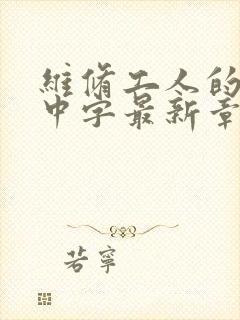 維脩工人的
中字最新章
若寧